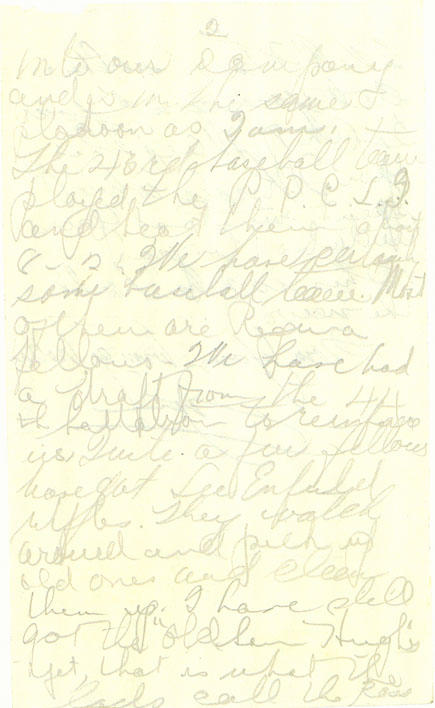 2
into our company
and is in the same
platoon as I am.
The 43rd baseball team
played the P. P. C. L. I.
and beat them about
8 - 2. We have certainly
some baseball team. Most
of them are Regina
fellows. We have had
a draft from the 44
th battalion to reinforce
us. Quite a few fellows
have got Lee Enfield
rifles. They watch
around and pick up
old ones and clean
them up. I have still
got the "old Sam Hughs"
yet, that is what the
lads call the Ross